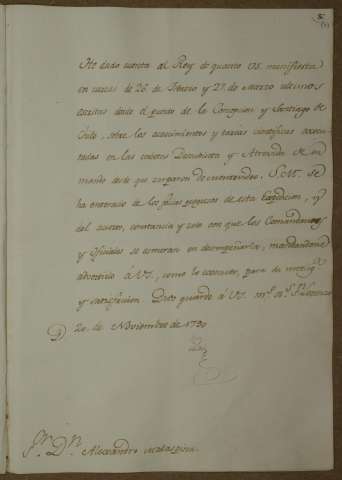 He dado cuenta al Rey de quanto VS. manifiesta
en cartas de 26. de Febrero y 27. de Marzo ultimos
escritas desde el puerto de la Concepcion y Santiago de
Chile, sobre los acaecimientos y tareas cientificas execu-
tadas en las corbetas Descubierta y Atrevida de su
mando desde que zarparon de Montevideo. S. M. se
ha enterado de los felices progresos de esta Expedicion, y
del acierto, constancia y zelo con que los Comandantes
y Oficiales se esmeran en desempeñarla, mandandome
advertirlo á VS, como lo executo, para su inteligª
y satisfaccion. Dios guarde á VS. mˢ. aˢ. Sⁿ Lorenzo
20. de Noviembre de 1790
Sʳ. Dⁿ. Alexandro Malaspina.